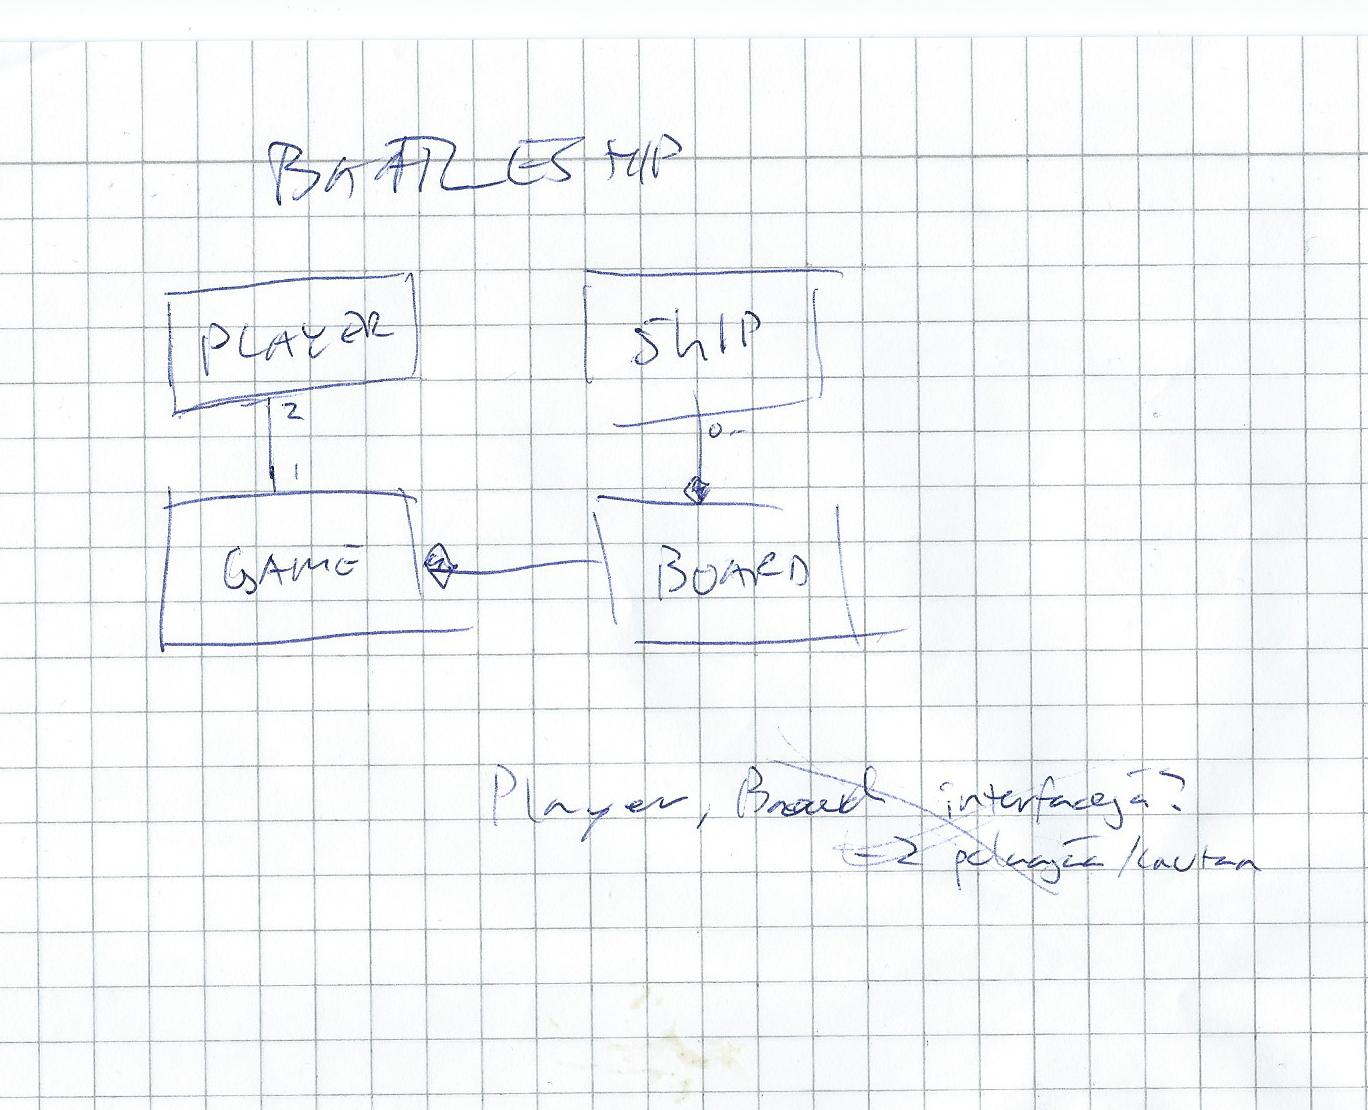 BATTLESHIP
PLAYER
SHIP
2
0..
1
GAME
BOARD
Player, Board interfacejä?
pelaajaa /